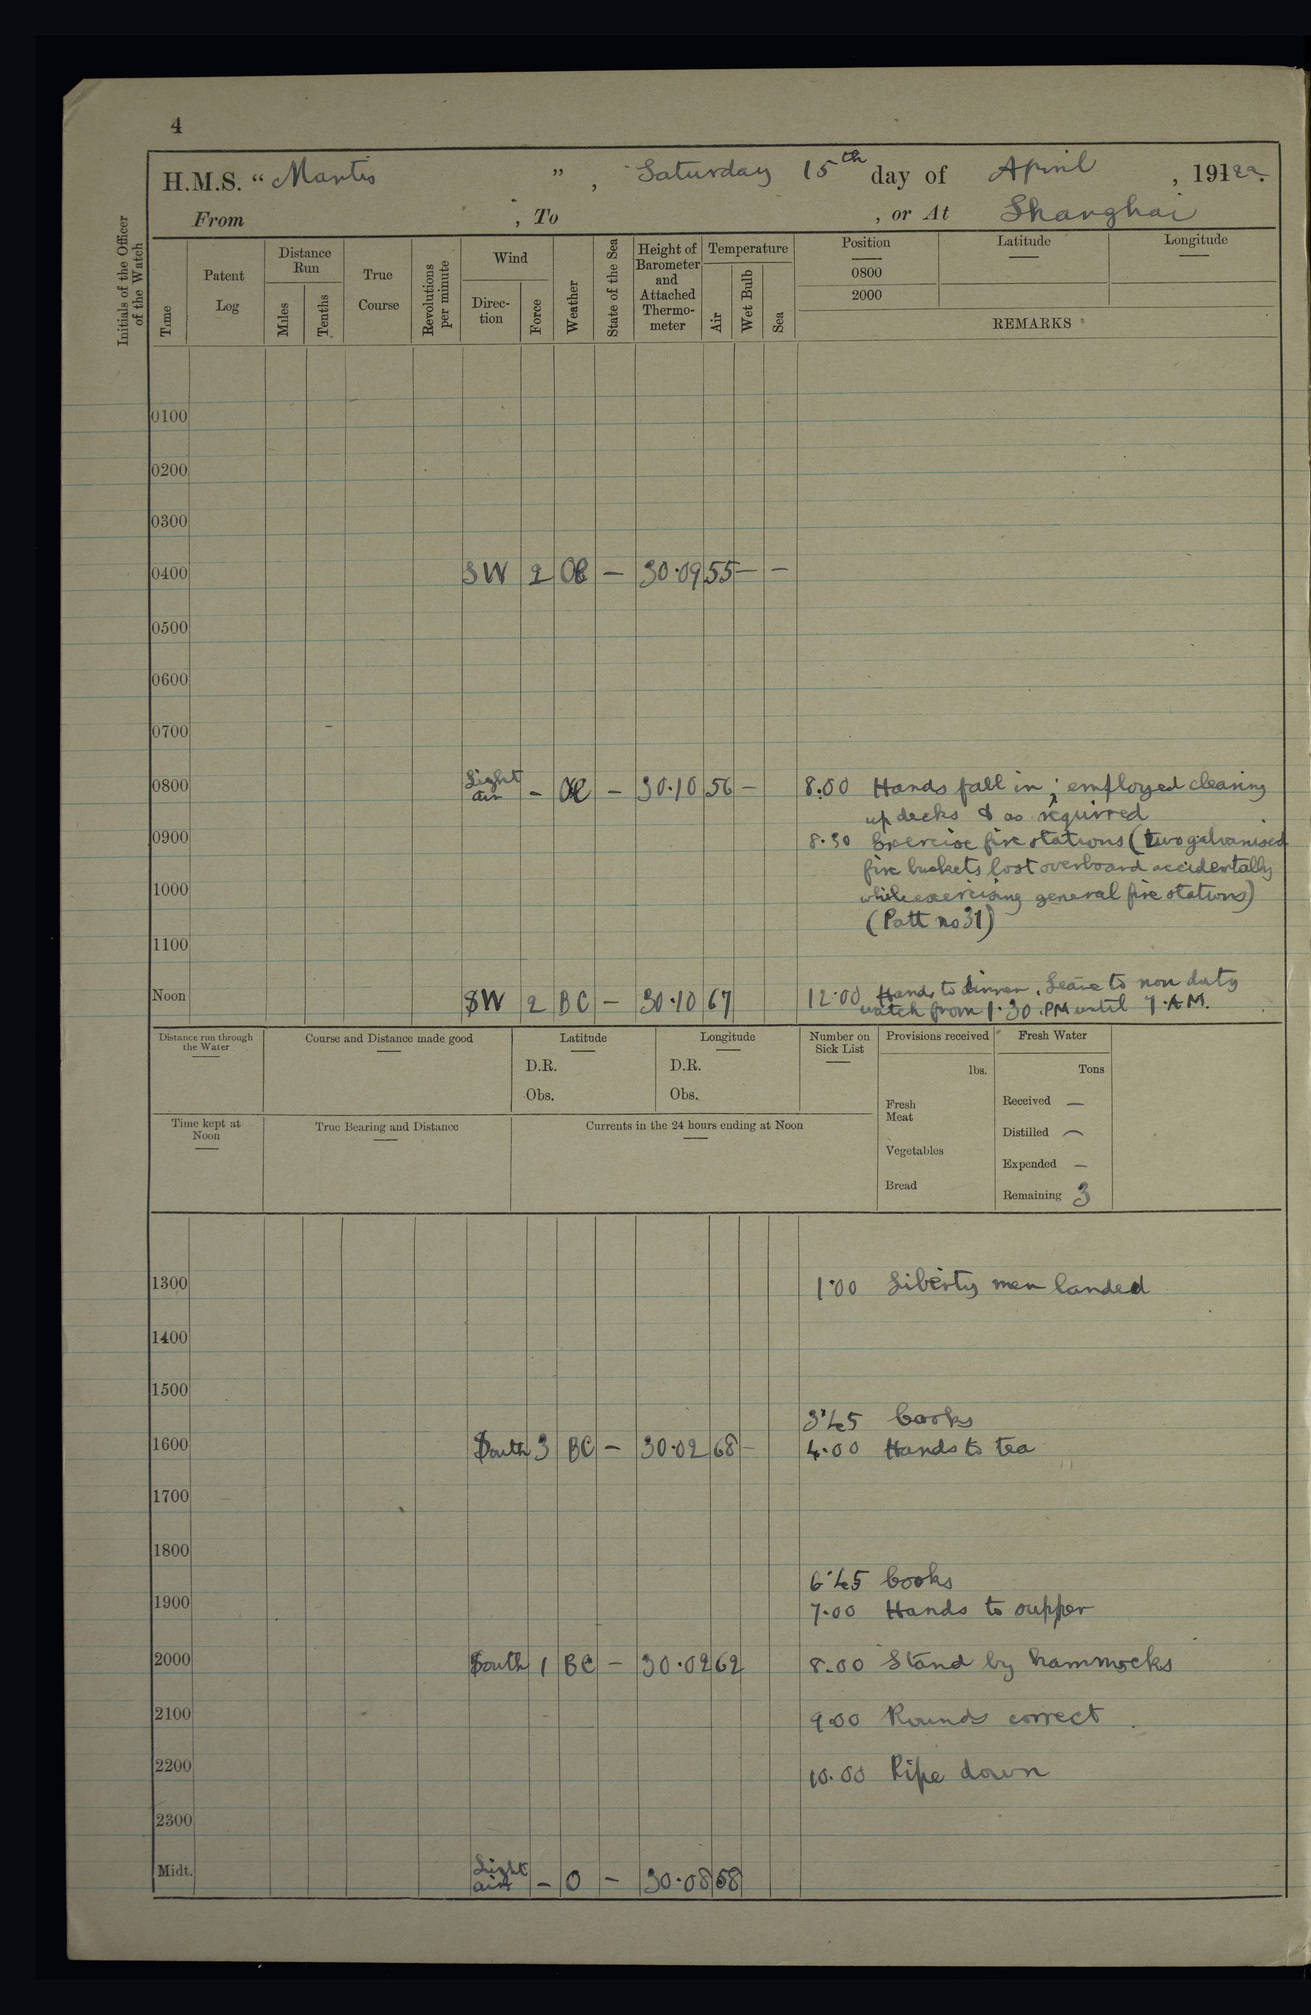 4
H.M.S. “ Mantis ” , Saturday 15th day of April , 1922.
From , To , or At Shanghai
Initials of the Officer of the Watch
Time
Patent Log
Distance Run
Miles
Tenths
True Course
Revolutions per minute
Wind
Direc-tion
Force
Weather
State of the Sea
Height of Barometer and Attached Thermo-meter
Temperature
Air
Wet Bulb
Sea
Position
Latitude
Longitude
0800
2000
REMARKS
0100
0200
0300
0400 SW 2 — 30.09 55 — —
0500
0600
0700
0800 Light air – — 30.10 56 — 8.00 Hands fall in ; employed cleaning
up decks & as required
0900 8.30 Exercise fire stations (two galvanised
fire buckets lost overboard accidentally
1000 while exercising general fire stations)
(Patt no 31)
1100
Noon SW 2 BC — 30.10 67 12.00 Hands to dinner. Leave to non duty
watch from 1.30. PM until 7. A.M.
Distance run through the Water
Course and Distance made good
Latitude
D.R.
Obs.
Longitude
D.R.
Obs.
Number on Sick List
Provisions received
lbs.
Fresh Meat
Vegetables
Bread
Fresh Water
Tons
Received —
Distilled —
Expended —
Remaining 3
Time kept at Noon
True Bearing and Distance
Currents in the 24 hours ending at Noon
1300 1.00 Liberty men landed
1400
1500
3.45 Cooks
1600 South 3 BC — 30.02 68 – 4.00 Hands to tea
1700
1800
6.45 Cooks
1900 7.00 Hands to supper
2000 South 1 BC — 30.02 62 8.00 Stand by hammocks
2100 9.00 Rounds correct .
2200 10.00 Pipe down
2300
Midt. Light air – O — 30.08 58